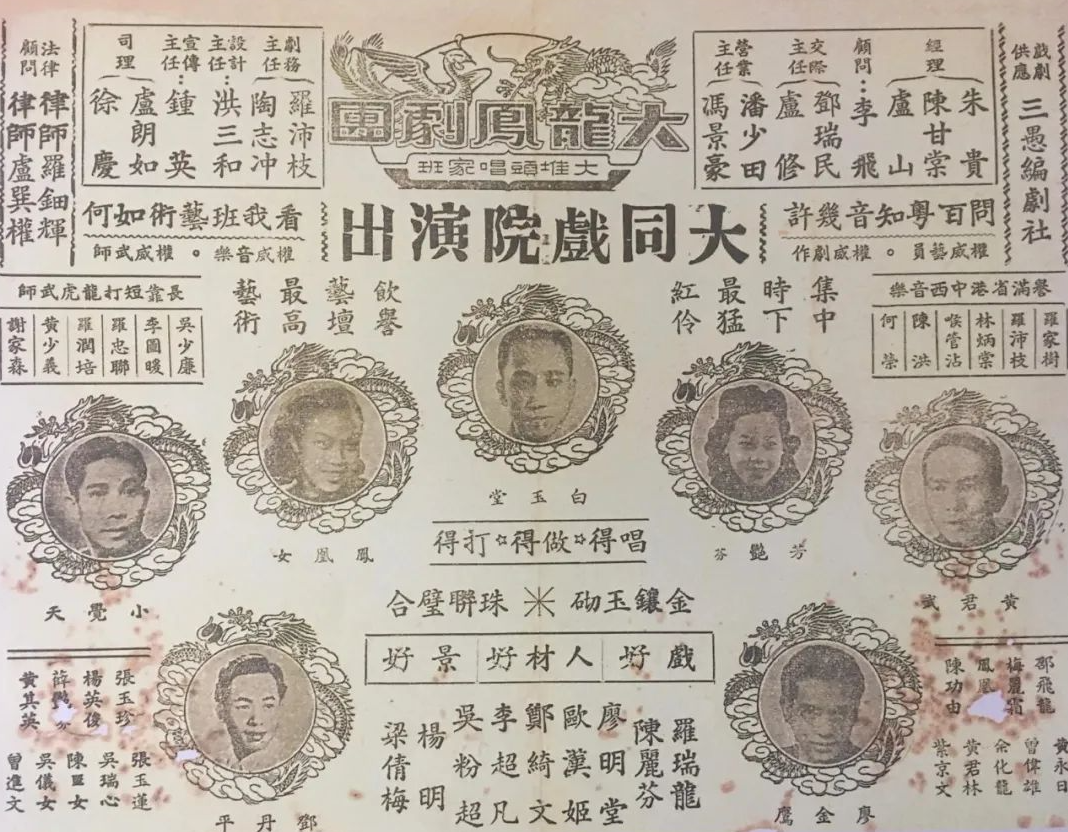 大龍鳳劇團
大堆頭唱家班
大同戲院演出
戲劇供應 三愚編劇社
經理 朱貴 陳甘棠 盧山
顧問：李飛
交際主任 鄧瑞民 盧修
營業主任 潘少田 馮景豪
劇務主任 羅沛枝 陶志冲
設計主任：洪三和
宣傳主任：鍾英
司理 盧朗如 徐慶
法律顧問 律師羅鈿輝 律師盧巽權
問百粵知音幾許
權威藝員。權威劇作
看我班藝術如何
權威音樂。權威武師
譽滿省港中西音樂
羅家樹
羅沛枝
林炳棠
喉管沾
陳洪
何榮
長靠短打龍虎武師
吳少廉
李圖暖
羅忠聯
羅潤培
黃少義
謝家森
集中
時下
最猛
紅伶
飲譽
藝壇
最高
藝術
白玉堂
芳艷芬
鳳凰女
黃君武
小覺天
唱得☆做得☆打得
金鑲玉砌 珠聯璧合
戲好 人材好 景好
羅瑞龍
陳麗芬
廖明堂
歐漢姬
鄭綺文
李超凡
吳粉超
楊明
梁倩梅
廖金鷹
鄧丹平
邵飛龍
梅麗霜
鳳凰
陳功由
黃永日
曾偉雄
余化龍
黃君林
紫京文
張玉珍
楊英俊
薛
黃其英
張玉蓮
吳瑞心
陳 女
吳儀女
曾進文